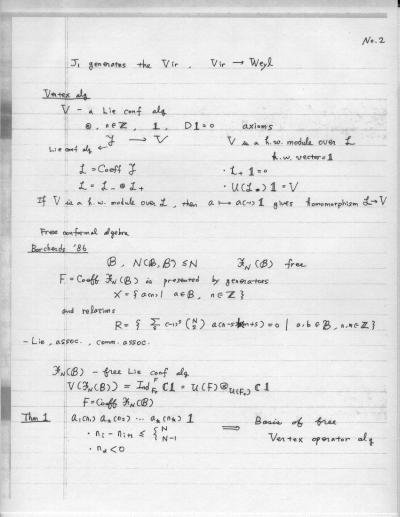 No.2
J₁ generates the Vir, Vir → Weyl
Vertex alg
V - a Lie conf alg
ⓝ, n∈ℤ, 𝟙, D𝟙=0 axioms
Lie conf alg 𝓛 → V V is a h.w. module over L
h.w. vector = 𝟙
L = Coeff 𝓛 · L₊ 𝟙 = 0
L = L₋ ⊕ L₊ · U(L₋) 𝟙 = V
If V is a h.w. module over L, then a ↦ a(-1) 𝟙 gives homomorphism L→V
Free conformal algebra
Borcherds '86
B, N(B,B) ≤ N 𝓕_N(B) free
F = Coeff 𝓕_N(B) is presented by generators
X = { a(n) | a∈B, n∈ℤ }
and relations
R = { Σₛ (-1)ˢ (N s) a(n-s)b(m+s) = 0 | a,b∈B, n,m∈ℤ }
- Lie, assoc., comm. assoc.
𝓕_N(B) - free Lie conf alg
V(𝓕_N(B)) = Ind_{F₊}^F ℂ𝟙 = U(F) ⊗_{U(F₊)} ℂ𝟙
F = Coeff 𝓕_N(B)
Thm 1 a₁(n₁) a₂(n₂) ... a_k(n_k) 𝟙 ⟹ Basis of free
· n_i - n_{i+1} ≤ { N N-1 Vertex operator alg
· n_k < 0